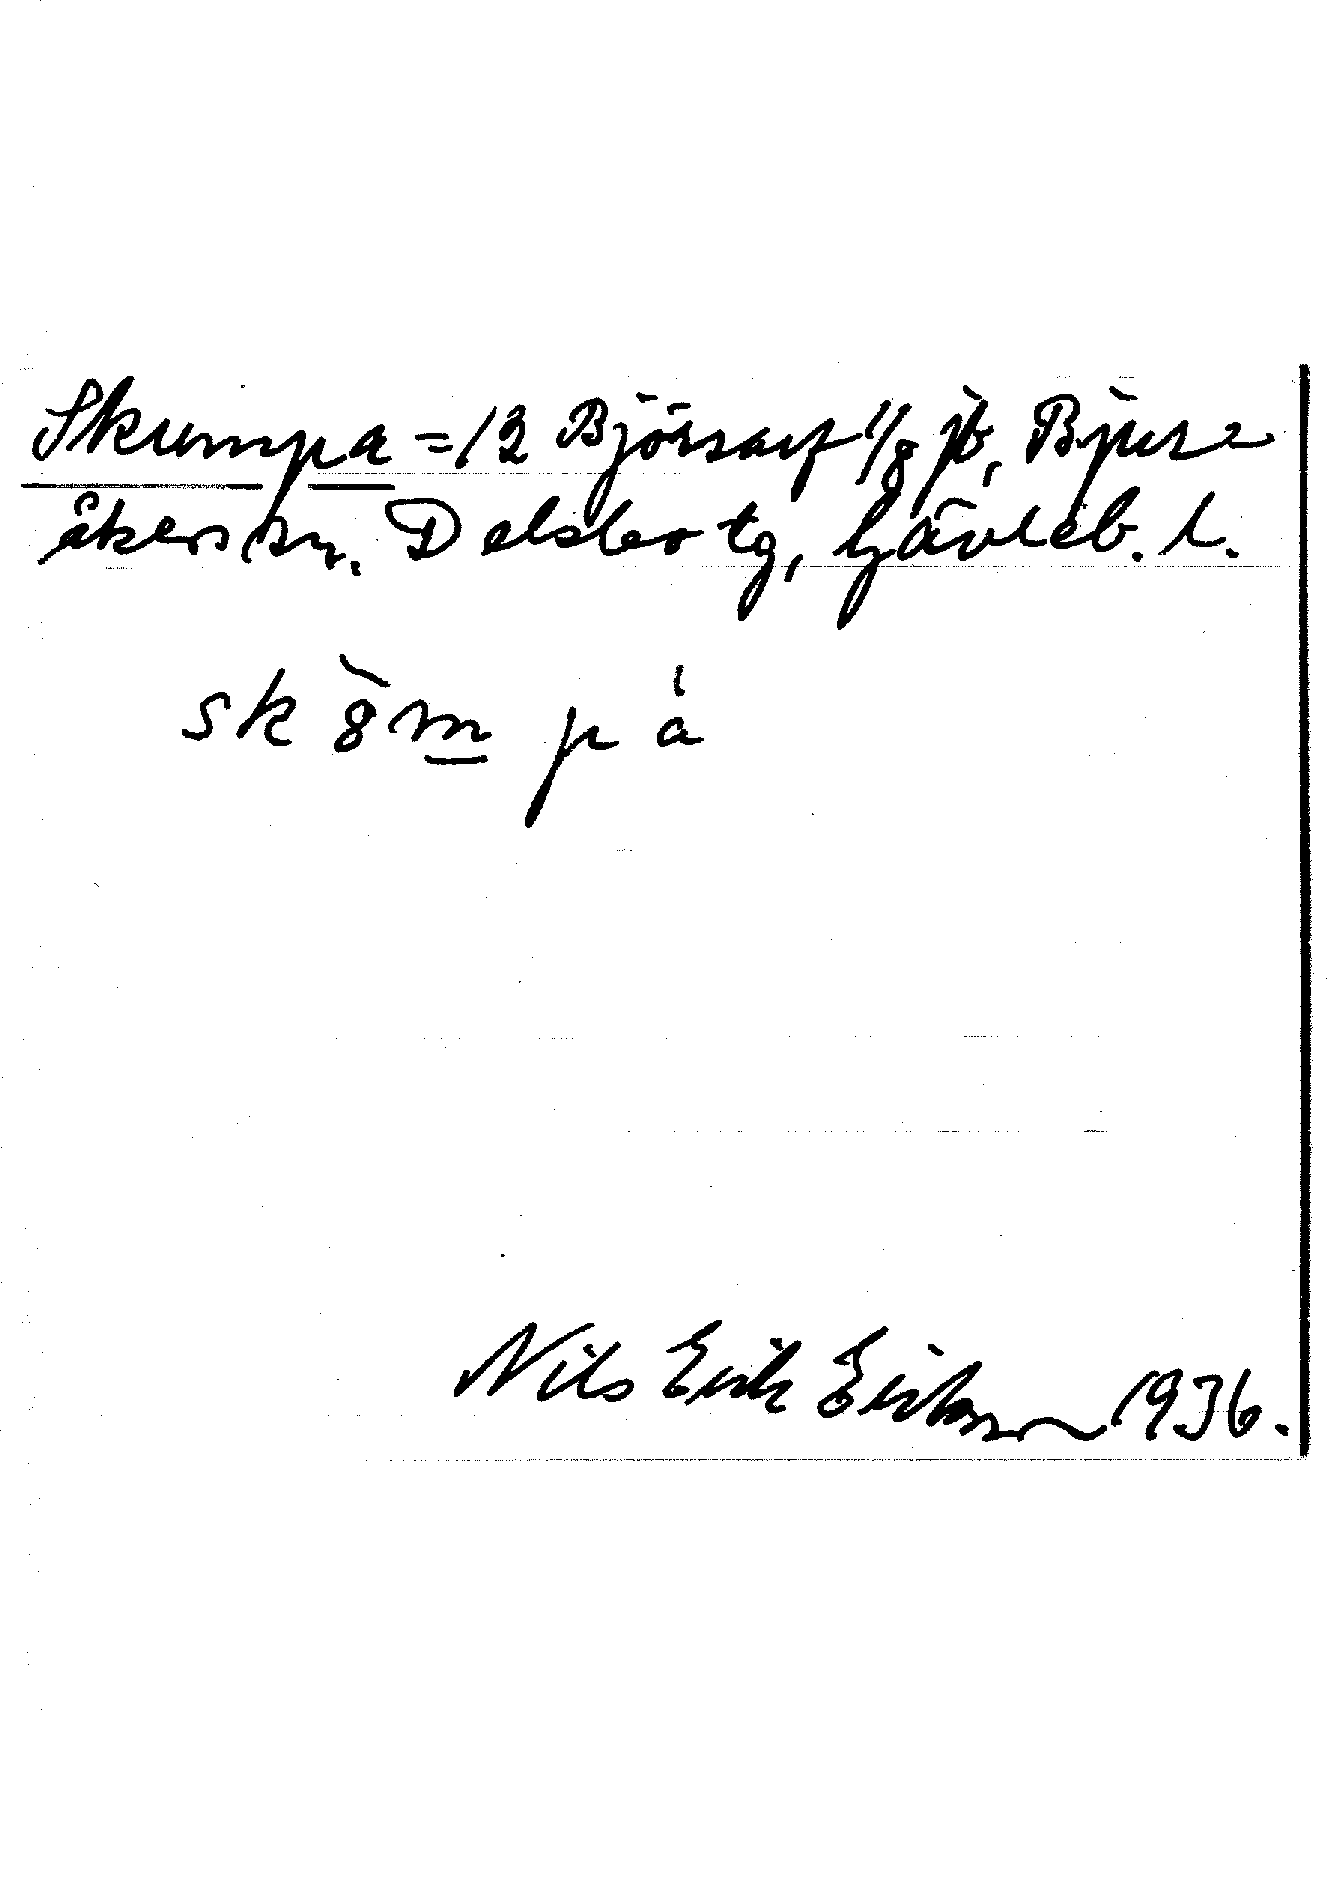 Skumpa = 12 Björsarf 1/8 jb, Bjurs=
åkers sn. Delsbo tg, Gävleb. l.
sk8̀m̲pá
Nils Erik Erikson 1936.